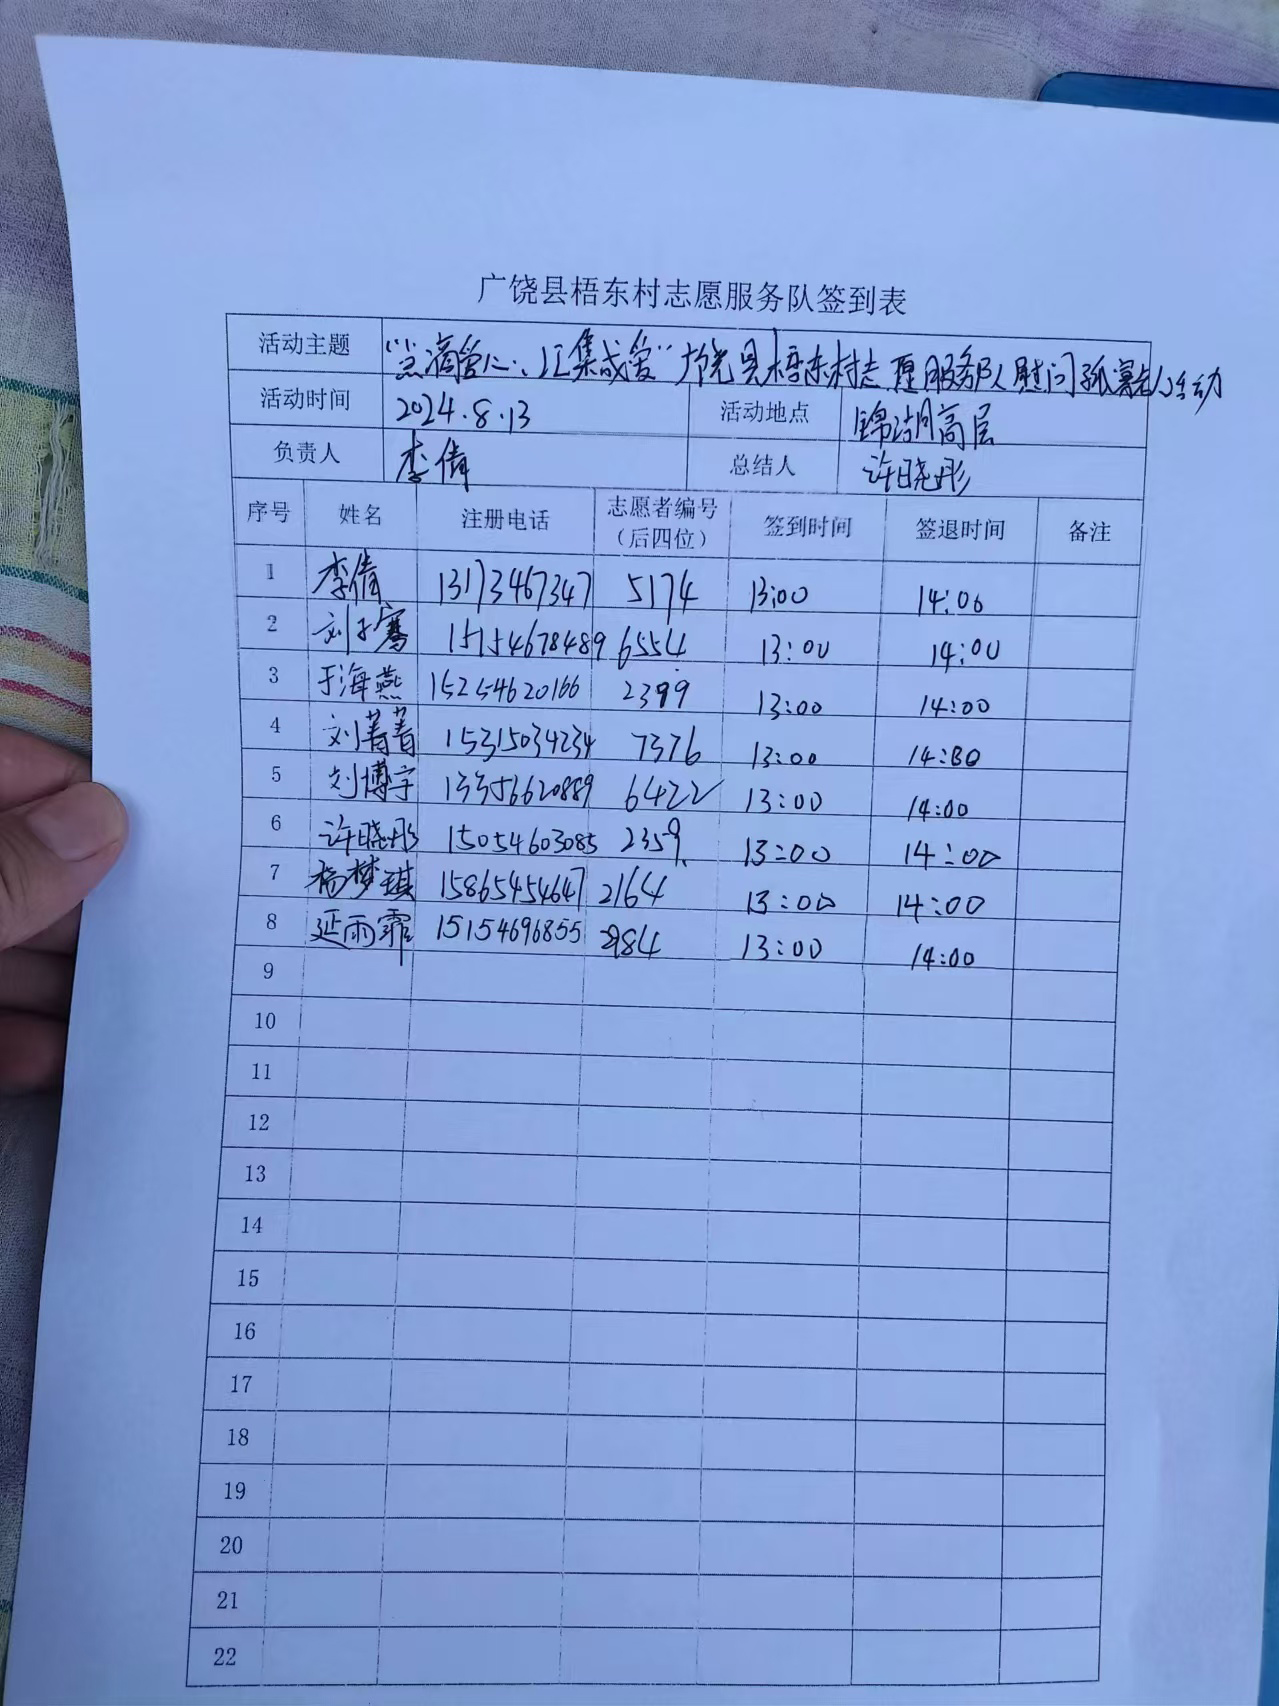 广饶县梧东村志愿服务队签到表
活动主题 “点滴爱心，汇集成爱”广饶县梧东村志愿服务队慰问孤寡老人活动
活动时间 2024.8.13 活动地点 锦湖高层
负责人 李倩 总结人 许晓彤
序号 姓名 注册电话 志愿者编号（后四位） 签到时间 签退时间 备注
1 李倩 13173467347 5174 13:00 14:00
2 刘子骞 15154678489 6554 13:00 14:00
3 于海燕 15254620166 2399 13:00 14:00
4 刘菁菁 15315034234 7376 13:00 14:00
5 刘博宇 13356620889 6422 13:00 14:00
6 许晓彤 15054603085 2359 13:00 14:00
7 杨梦琪 15865454647 2164 13:00 14:00
8 延雨霏 15154696855 13:00 14:00
9
10
11
12
13
14
15
16
17
18
19
20
21
22